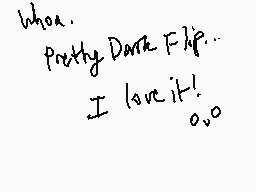 Whoa.
Pretty Dark Flip...
I love it!
o.o